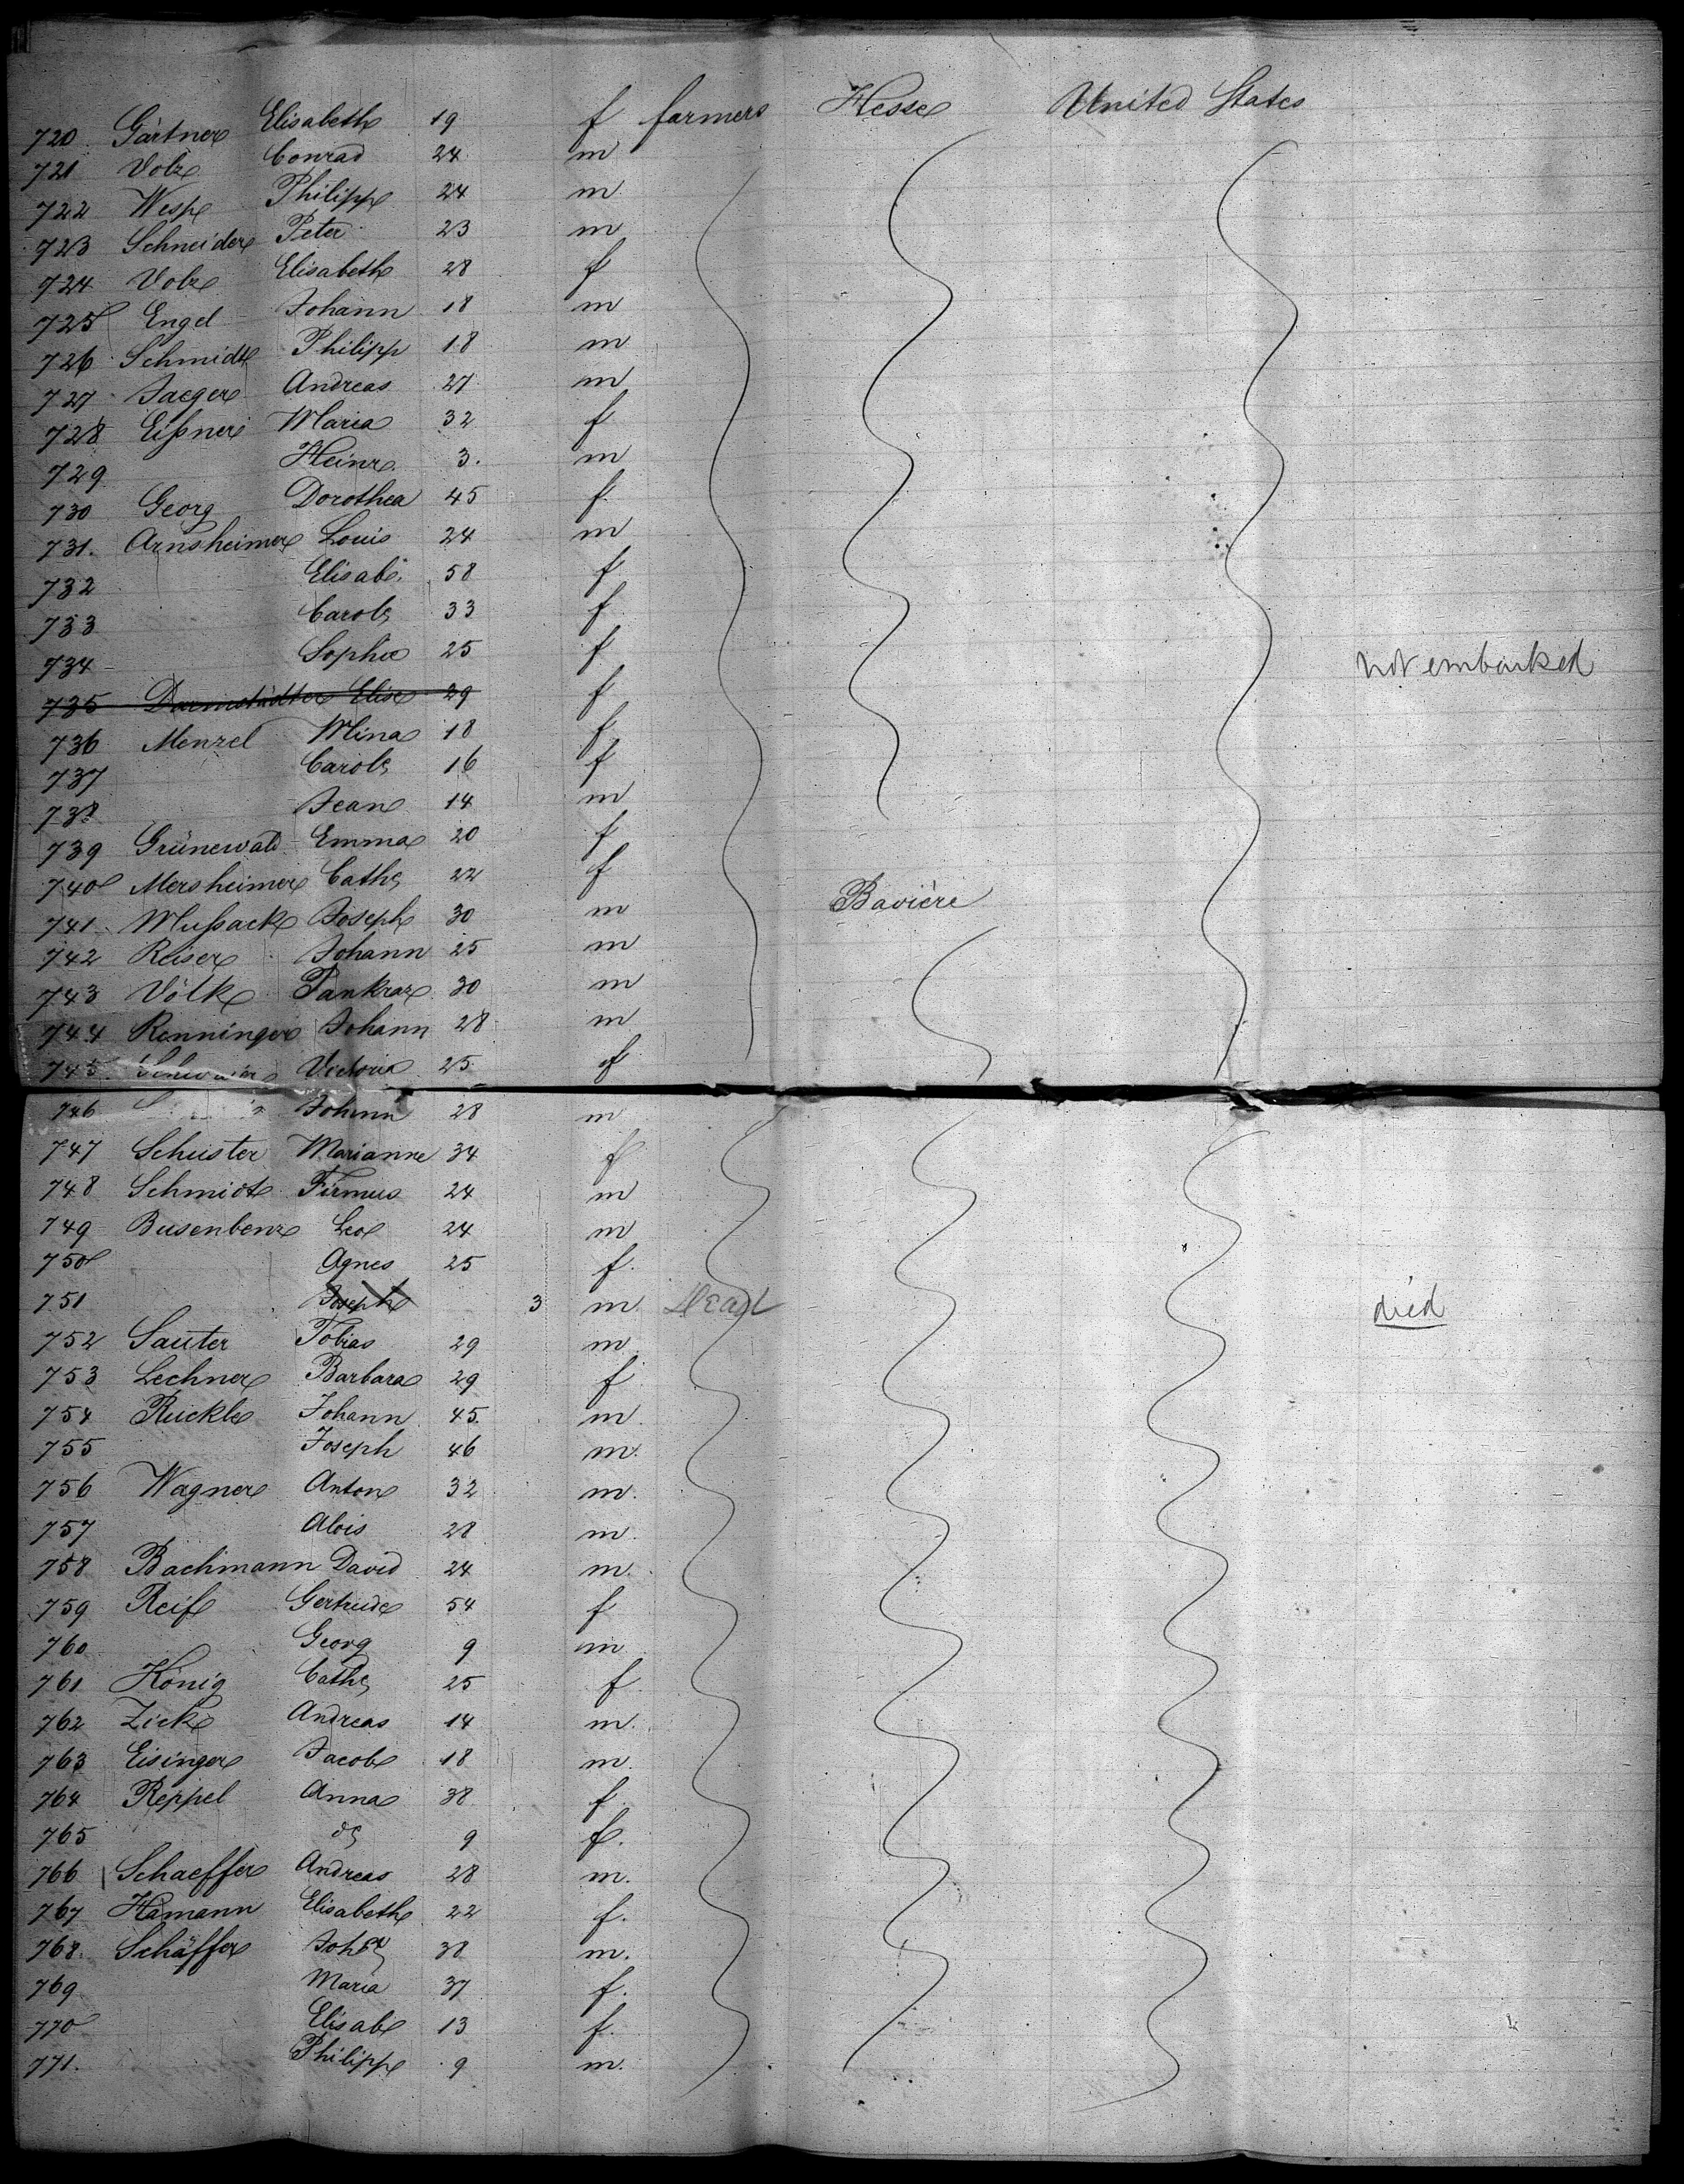 720 Gärtner Elisabeth 19 f farmers Hesse United States
721 Volz Conrad 24 m
722 Wesp Philipp 24 m
723 Schneider Peter 23 m
724 Volz Elisabeth 28 f
725 Engel Johann 18 m
726 Schmidt Philipp 18 m
727 Jaeger Andreas 27 m
728 Eißner Maria 32 f
729 Heinr. 3. m
730 Georg Dorothea 45 f
731. Arnsheimer Louis 24 m
732 Elisab. 58 f
733 Carole 33 f
734 Sophie 25 f not embarked
735 Darmstädter Elise 29 f
736 Menzel Mina 18 f
737 Carole 16 f
738 Jean 14 m
739 Grünewald Emma 20 f
740 Mersheimer Cathe 22 f Bavière
741 Mußack Joseph 30 m
742 Reiser Johann 25 m
743 Völk Pankraz 30 m
744 Renninger Johann 28 m
745. Victoria 25 f
746 Johann 28 m
747 Schuster Marianne 34 f
748 Schmidt Firmus 24 m
749 Busenbenz Leo 24 m
750 Agnes 25 f.
751 Joseph 3 m Dead died
752 Sauter Tobias 29 m
753 Lechner Barbara 29 f
754 Rückle Johann 45. m.
755 Joseph 46 m.
756 Wagner Anton 32 m.
757 Alois 28 m.
758 Bachmann David 24 m.
759 Reif Gertrude 54 f
760 Georg 9 m
761 König Cathe 25 f
762 Zick Andreas 14 m.
763 Eisinger Jacob 18 m.
764 Reppel Anna 38 f
765 do 9 f.
766 Schaeffer Andreas 28 m.
767 Hamann Elisabeth 22 f.
768. Schäffer 38 m.
769 Maria 37 f.
770 Elisab 13 f.
771. Philipp 9 m.